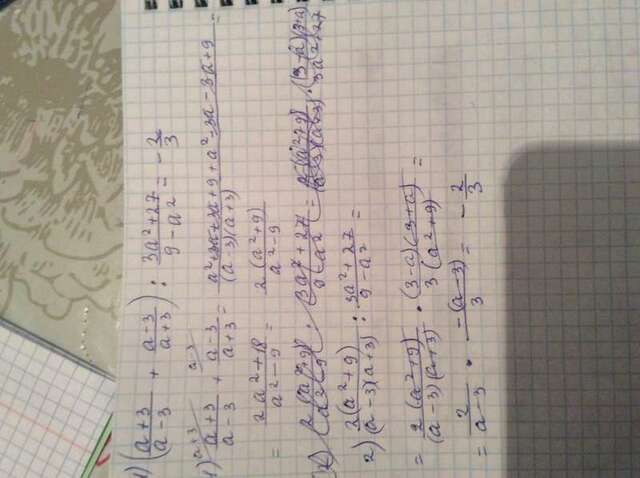 1) (a+3/a-3 + a-3/a+3) : 3a²+27/9-a² = -2/3
1) a+3/a-3 + a-3/a+3 = a²+3a+3a+9+a²-3a-3a+9/(a-3)(a+3) =
= 2a²+18/a²-9 = 2(a²+9)/a²-9
2) 2(a²+9)/(a-3)(a+3) : 3a²+27/9-a² =
= 2(a²+9)/(a-3)(a+3) · (3-a)(3+a)/3(a²+9) =
= 2/a-3 · -(a-3)/3 = -2/3